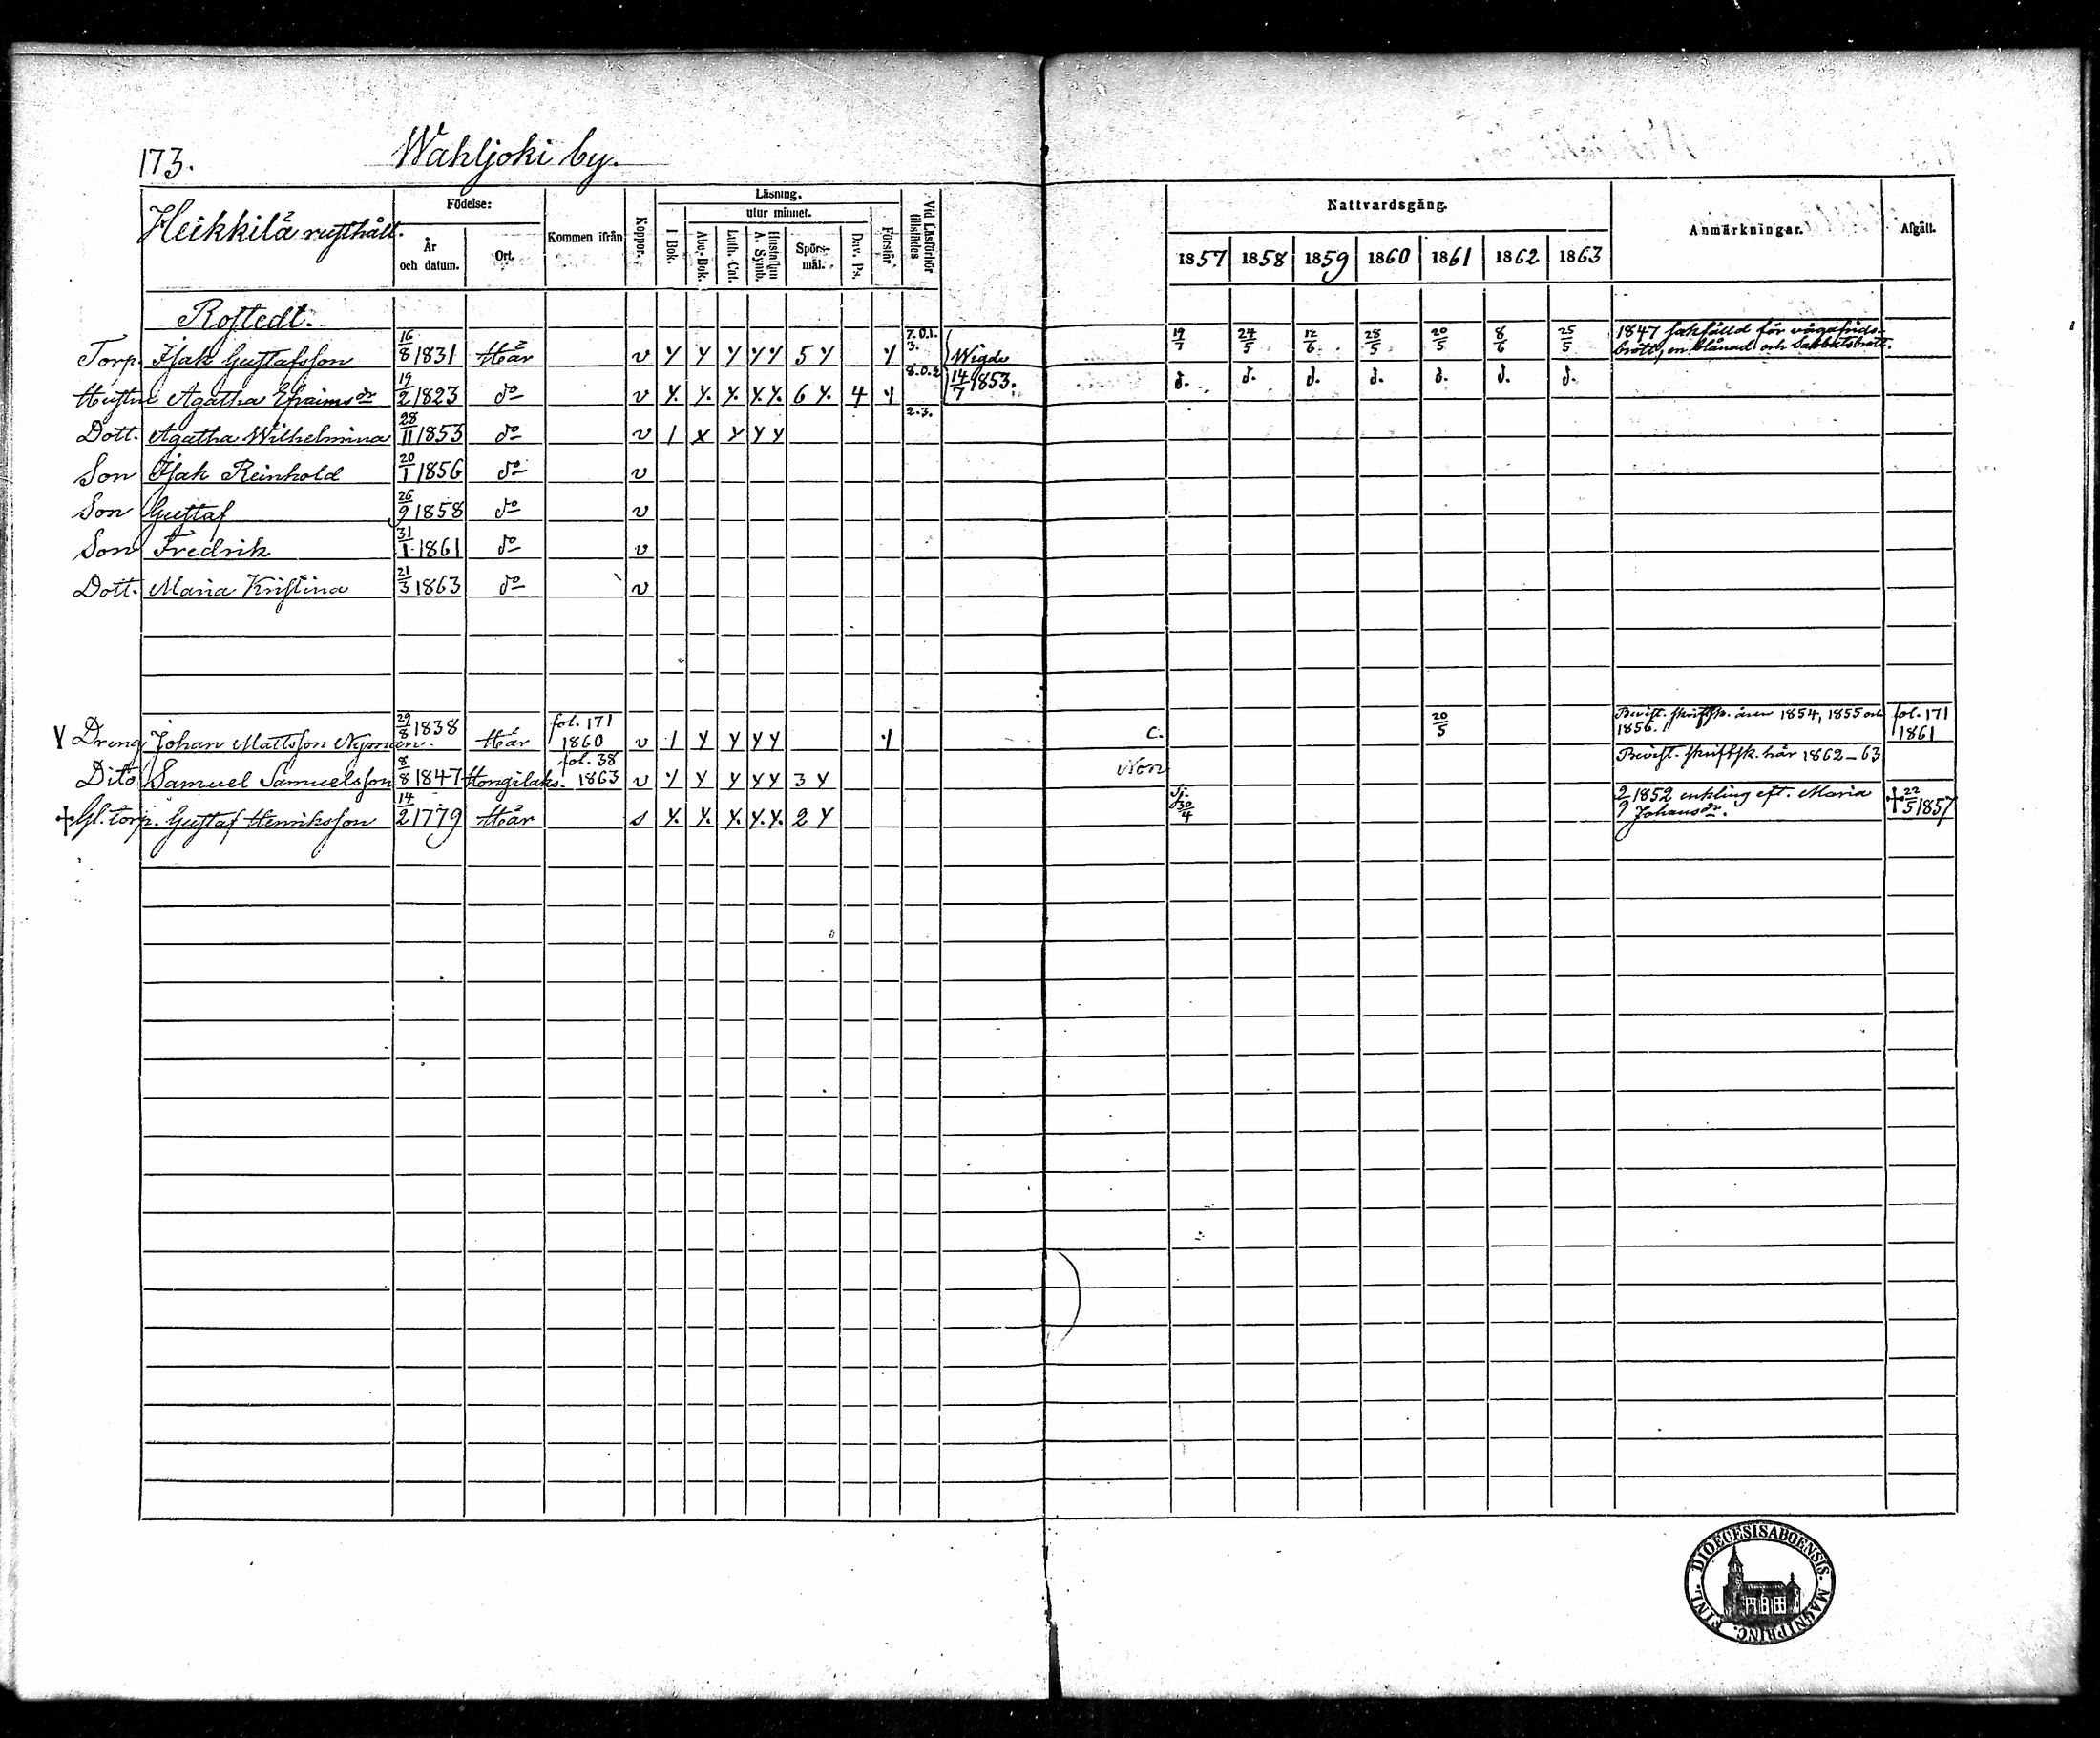 173. Wahljoki by.
Heikkilä rusthåll.
Födelse:
År och datum.
Ort.
Kommen ifrån
Koppor.
Läsning,
utur minnet.
I Bok.
Abc-Bok.
Luth. Cat.
Hustaflan A. Symb.
Spörsmål.
Dav. Ps.
Förstår
Vid Läsförhör tillstädes
Nattvardsgång.
1857 1858 1859 1860 1861 1862 1863
Anmärkningar.
Afgått.
Rostedt.
Torp. Isak Gustafsson 16/8 1831 Här v Y Y Y Y Y 5 Y Y 7.0.1. 3. Wigde 19/7 24/5 12/6 28/5 20/5 8/6 25/5 1847 sakfälld för vägafrids-
brott, en blånad och Sabbatsbrott.
Hustru Agatha Efraimsdr 19/2 1823 do v Y. Y. Y. Y. Y. 6 Y. 4 Y 8.0.2 14/7 1853. d. d. d. d. d. d. d.
Dott. Agatha Wilhelmina 28/11 1853 do v I x Y Y Y 2.3.
Son Isak Reinhold 20/1 1856 do v
Son Gustaf 26/9 1858 do v
Son Fredrik 31/1 1861 do v
Dott. Maria Kristina 21/3 1863 do v
Y Dreng Johan Mattsson Nyman. 29/8 1838 Här fol. 171 1860 v I Y Y Y Y Y C. 20/5 Bevist. skriftsk. åren 1854, 1855 och
1856. fol. 171 1861
Dito Samuel Samuelsson 8/8 1847 Hongilaks. fol. 38 1863 v Y Y Y Y Y 3 Y Non Bevist. skriftsk. här 1862-63
† Gl. torp. Gustaf Henriksson 14/2 1779 Här s Y. Y. Y. Y. Y. 2 Y Sj. 30/4 2/9 1852 enkling eft. Maria
Johansdr. † 22/5 1857
DIOECESIS ABOENSIS. MAGNI PRINC. FINL.